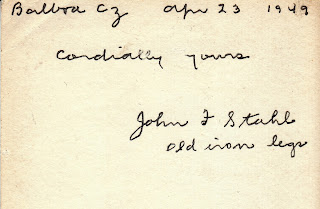 Balboa CZ Apr 23 1949
Cordially yours
John F Stahl
old iron legs